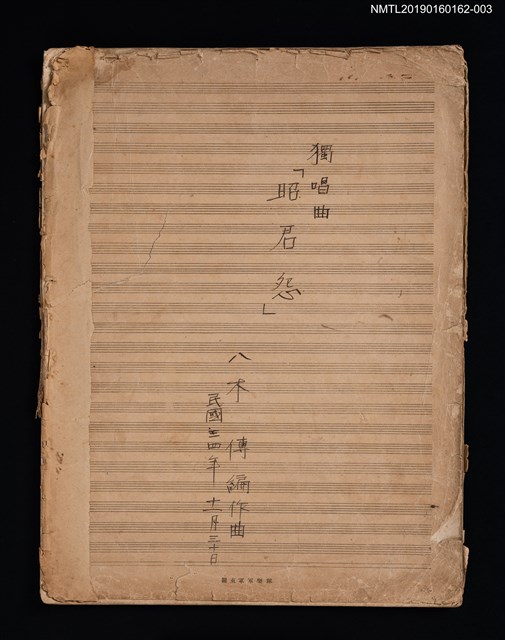 NMTL20190160162-003
獨唱曲
「昭君怨」
八木傳編作曲
民國三四年十一月三十日